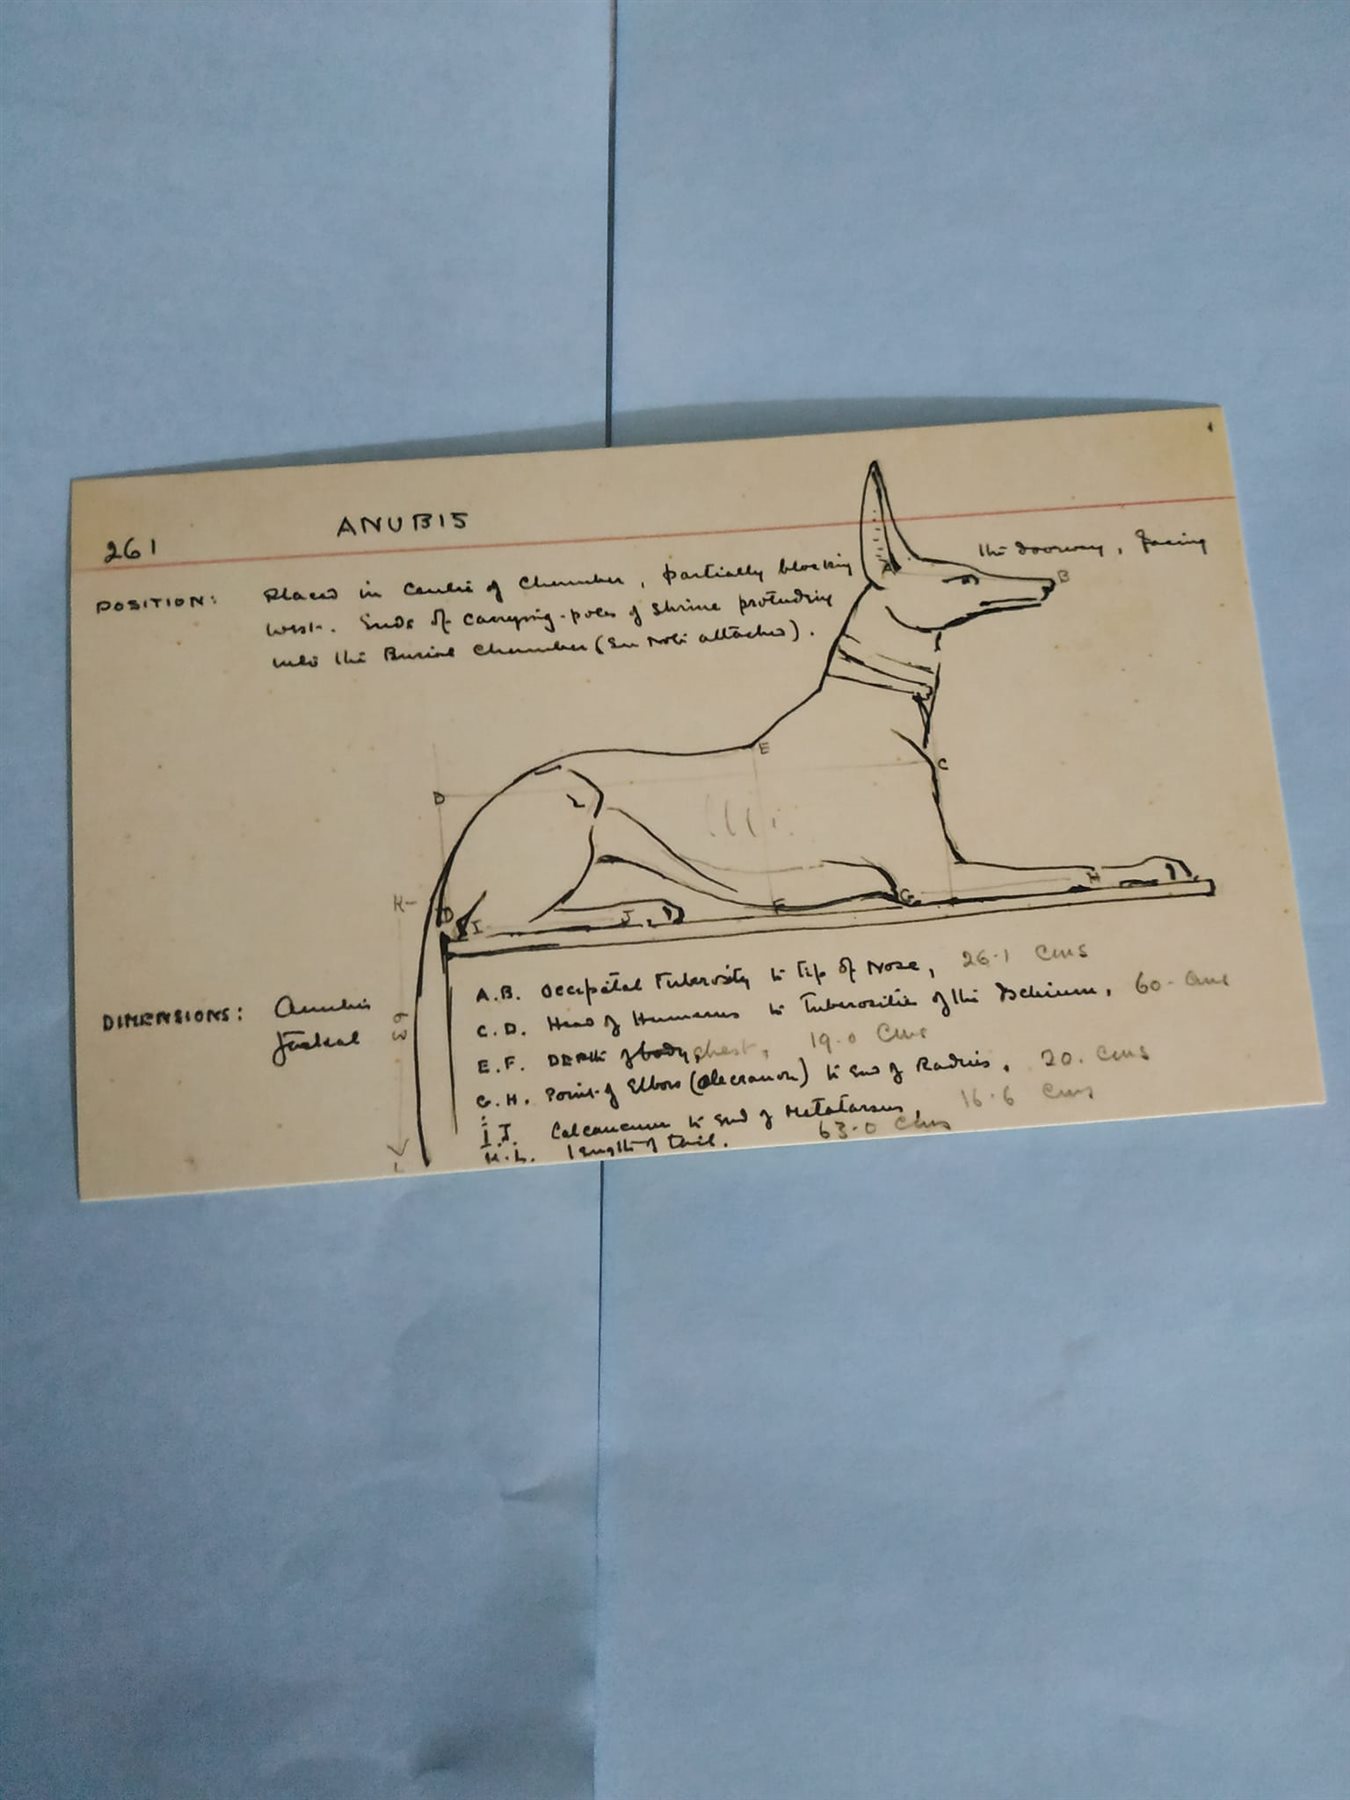 261 ANUBIS
POSITION: Placed in centre of Chamber, partially blocking the doorway, facing
west. Ends of carrying-poles of shrine protruding
into the Burial Chamber (See Note attached).
A B
E C
D
K
D I J F G H
DIMENSIONS: Anubis
Jackal
63
L
A.B. Occipital Tuberosity to tip of Nose, 26.1 cms
C.D. Head of Humerus to Tuberosities of the Ischium, 60. cms
E.F. DEPTH of body chest, 19.0 cms
G.H. Point of Elbow (Olecranon) to end of Radius, 20. cms
I.J. Calcaneum to end of Metatarsus, 16.6 cms
K.L. length of tail. 63.0 cms